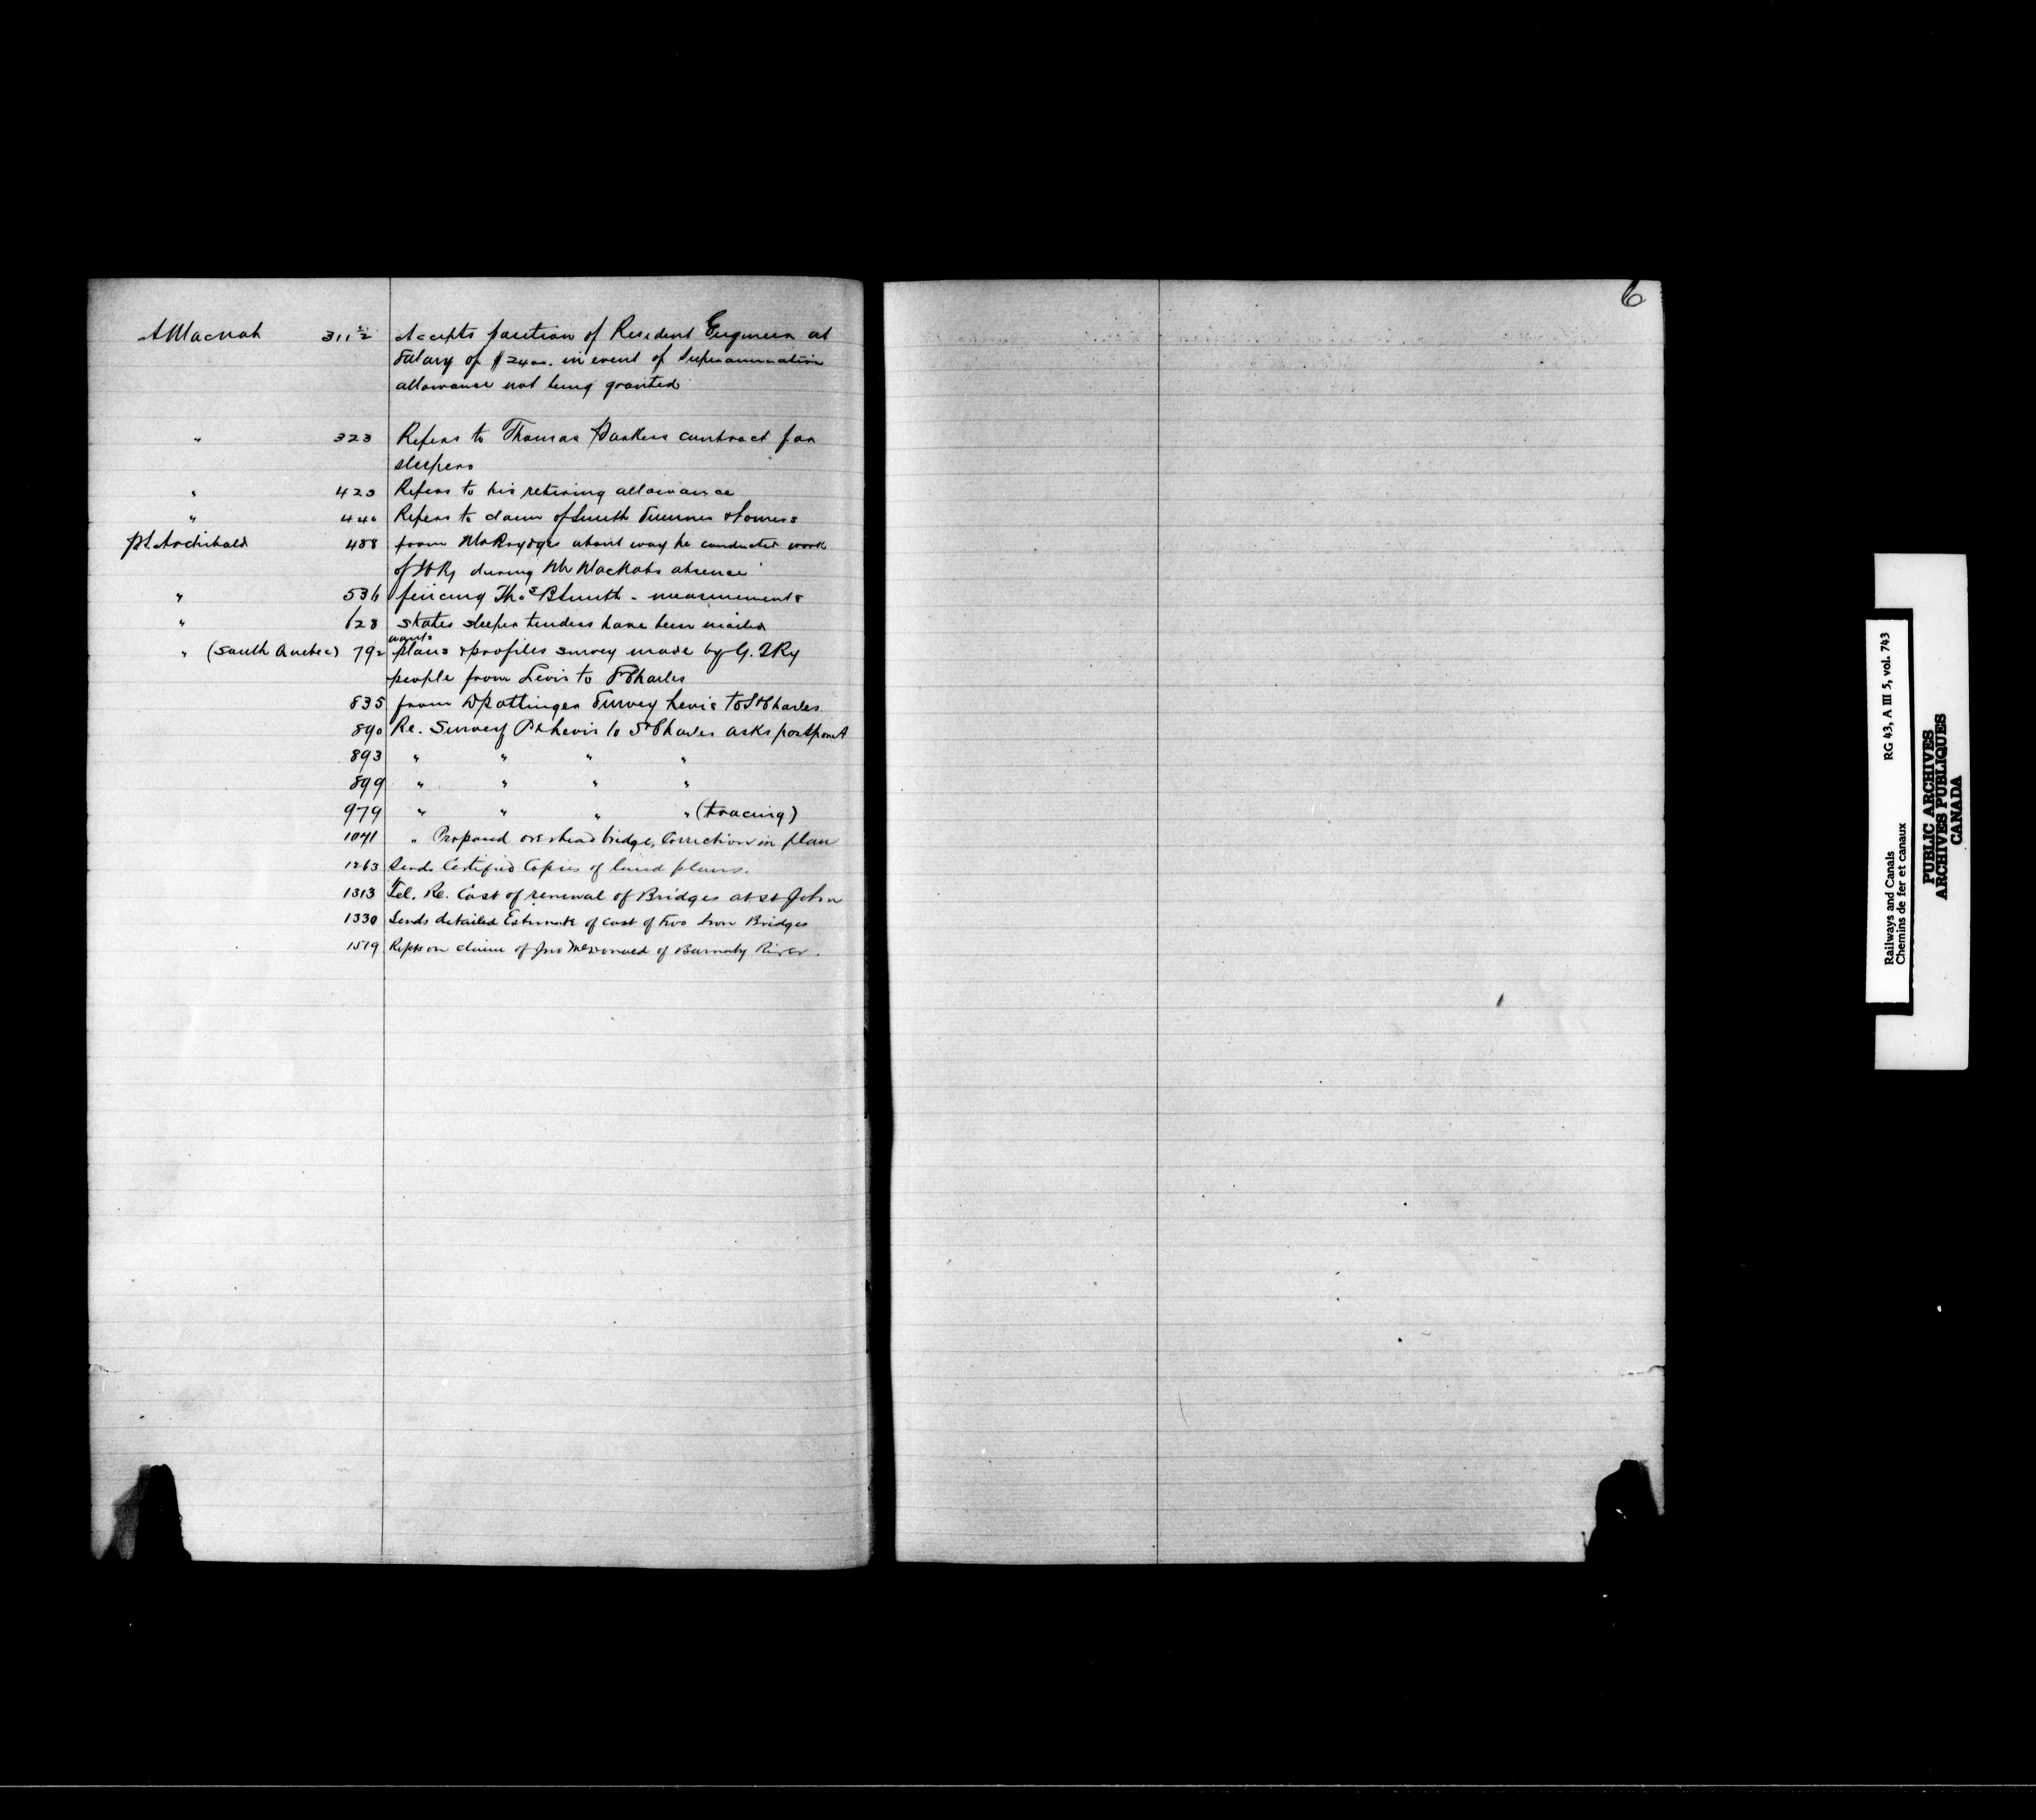 6
A Macnab 311½ Accepts position of Resident Engineer at
Salary of $2400. in event of Superannuation
allowance not being granted
" 323 Refers to Thomas Parkers contract for
sleepers
" 423 Refers to his retiring allowance
" 440 Refers to claim of Smith
P.S. Archibald 488 from Mr Brydges about way he conducted work
of Ry during Mr MacNabs absence
" 536 fencing Thos B Smith - measurements
" 628 States sleeper tenders have been mailed
wants
" (South Quebec) 792 plans & profiles survey made by G. T Ry
people from Levis to St Charles
835 from D Pottinger Survey Levis to St Charles
890 Re. Survey Pt Levis to St Charles asks postpont
893 " " " "
899 " " " "
979 " " " " (tracing)
1041 " Proposed overhead bridge, Correction in plan
1263 Sends Certified Copies of land plans.
1313 Tel. Re. Cost of renewal of Bridges at St John
1330 Sends detailed Estimate of cost of two Iron Bridges
1519 on claim of Jno McDonald of Barnaby River.
Railways and Canals RG 43, A III 5, vol. 743
Chemins de fer et canaux
PUBLIC ARCHIVES
ARCHIVES PUBLIQUES
CANADA